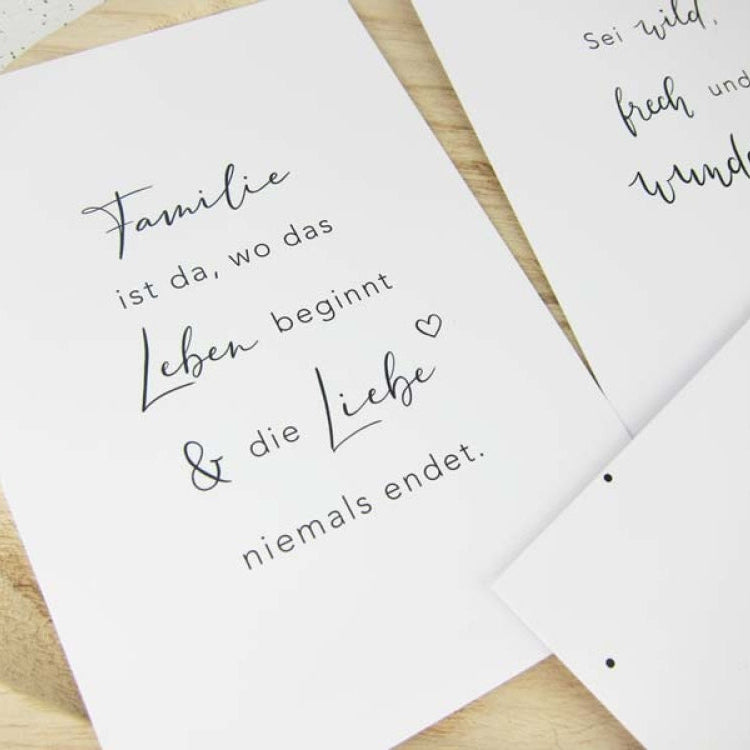 Familie
ist da, wo das
Leben beginnt
& die Liebe
niemals endet.
Sei wild,
frech und